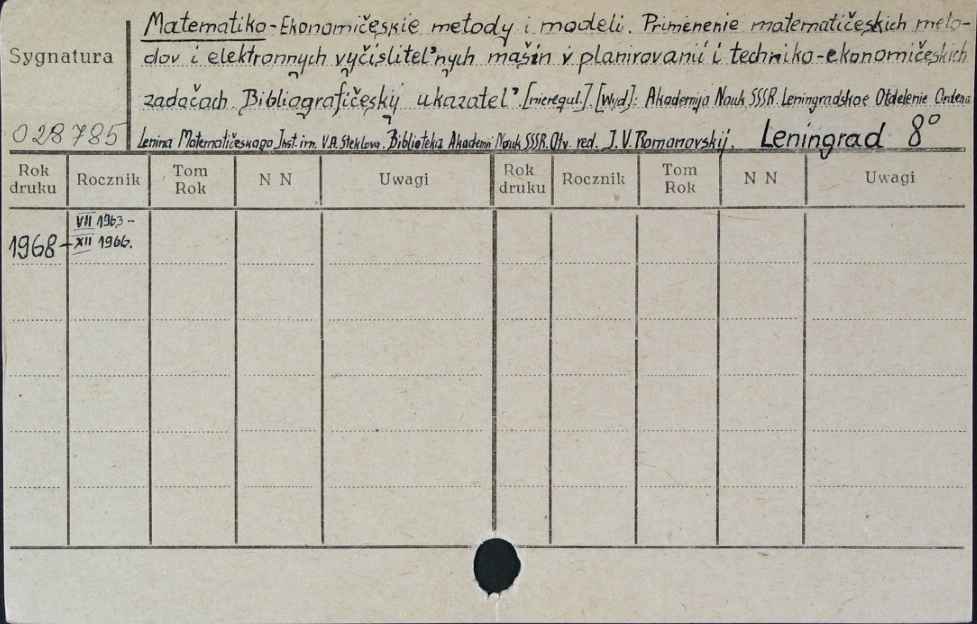 Matematiko-Ekonomičeskie metody i modeli. Primenenie matematičeskich meto-
Sygnatura
dov i elektronnych vyčislitel'nych mašin v planirovanii i techniko-ekonomičeskich
zadačach. Bibliografičeskij ukazatel'. [nieregul.]. [Wyd]: Akademija Nauk SSSR. Leningradskoe Otdelenie Ordena
028785
Lenina Matematičeskogo Inst. im. V.A. Steklova. Biblioteka Akademii Nauk SSSR. Otv. red. J. V. Romanovskij. Leningrad 8°
Rok druku Rocznik Tom Rok N N Uwagi Rok druku Rocznik Tom Rok N N Uwagi
VII 1963 -
1968 - XII 1966.